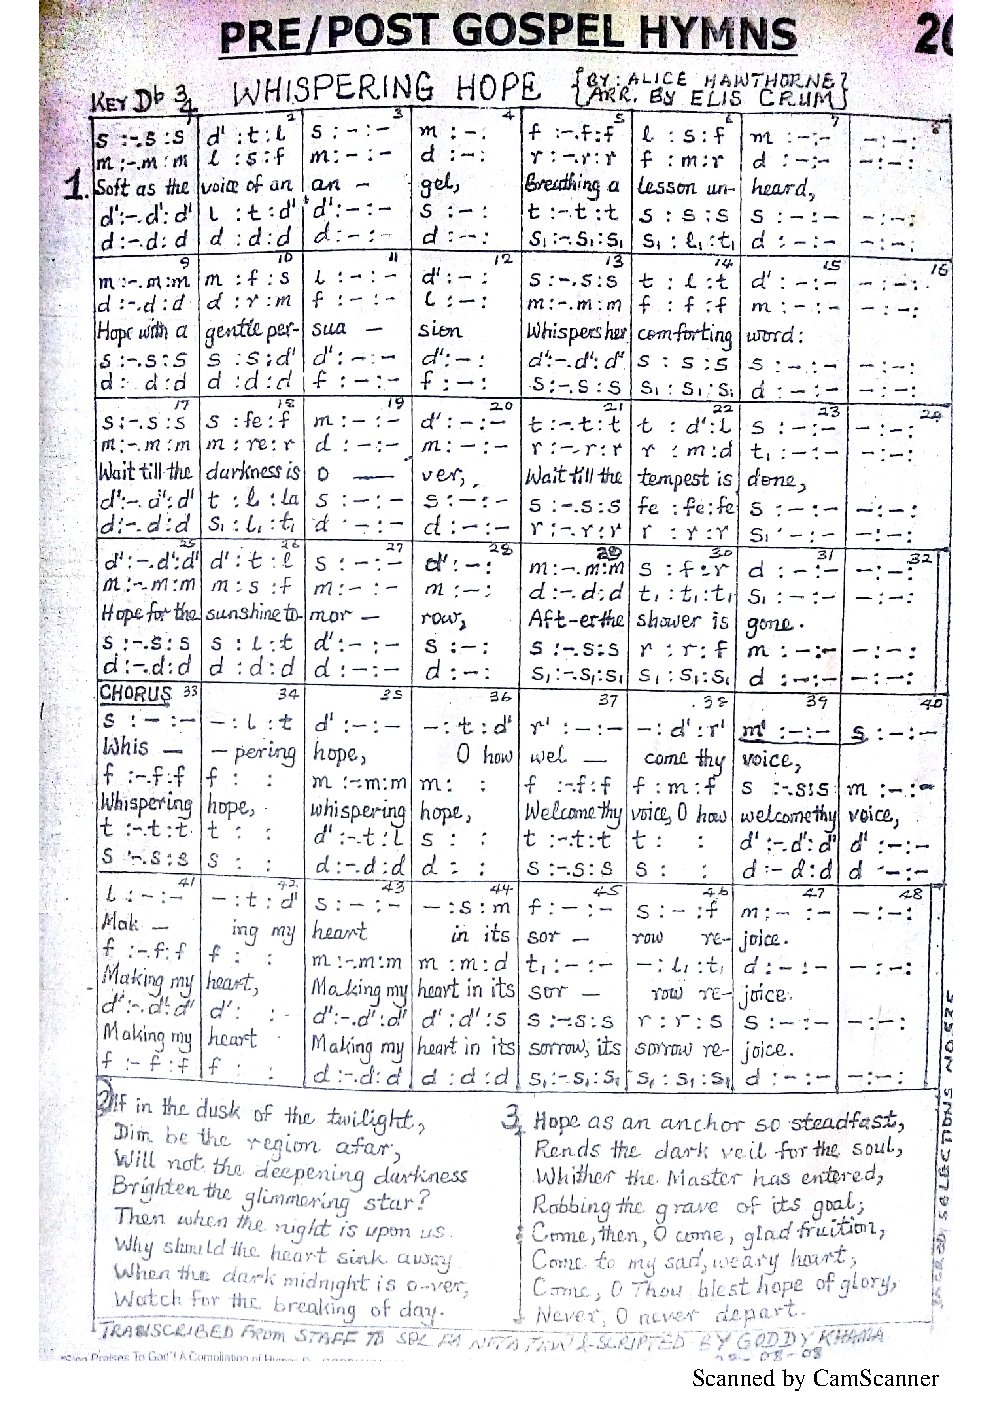 PRE/POST GOSPEL HYMNS 20
KEY Db 3/4 WHISPERING HOPE {BY: ALICE HAWTHORNE}
{ARR. BY ELIS CRUM}
1 2 3 4 5 6 7 8
s :-.s :s | d' : t : l | s : - : - | m : -. | f :-.f:f | l : s : f | m : -:- | -:-:
m :-.m:m | l : s : f | m : - : - | d : -: | r :-.r:r | f : m : r | d : -:- | -:-:
1. Soft as the voice of an an - gel, Breathing a lesson un- heard,
d':-.d':d' | l : t : d' | d':-:- | s : -: | t :-.t:t | s : s : s | s : -:- | -:-:
d :-.d:d | d : d : d | d :-:- | d : -: | s₁:-.s₁:s₁ | s₁ : l₁ : t₁ | d : -:- | -:-:
9 10 11 12 13 14 15 16
m :-.m:m | m : f : s | l : - : - | d' : - : | s :-.s:s | t : l : t | d' : -:- | -:-:
d :-.d:d | d : r : m | f : - : - | l : -: | m:-.m:m | f : f : f | m : -:- | -:-:
Hope with a gentle per- sua - sion Whispers her comforting word:
s :-.s:s | s : s : d' | d' : -:- | d' : -: | d':-.d':d' | s : s : s | s : -:- | -:-:
d : d:d | d : d : d | f : -:- | f : -: | s:-.s:s | s₁ : s₁ : s₁ | d : -:- | -:-:
17 18 19 20 21 22 23 24
s :-.s:s | s : fe : f | m : -:- | d' : -:- | t :-.t:t | t : d' : l | s : -:- | -:-:
m :-.m:m | m : re : r | d : -:- | m : -:- | r :-.r:r | r : m : d | t₁ : -:- | -:-:
Wait till the darkness is o — ver, Wait till the tempest is done,
d':-.d':d' | t : l : la | s : -:- | s : -:- | s :-.s:s | fe : fe : fe | s : -:- | -:-:
d :-.d:d | s₁ : l₁ : t₁ | d : -:- | d : -:- | r :-.r:r | r : r : r | s₁ : -:- | -:-:
25 26 27 28 29 30 31 32
d':-.d':d' | d' : t : l | s : -:- | d' : -: | m :-.m:m | s : f : r | d : -:- | -:-:
m :-.m:m | m : s : f | m : -:- | m : -: | d :-.d:d | t₁ : t₁ : t₁ | s₁ : -:- | -:-:
Hope for the sunshine to- mor - row, Aft-er the shower is gone.
s :-.s:s | s : l : t | d' : -:- | s : -: | s :-.s:s | r : r : f | m : -:- | -:-:
d :-.d:d | d : d : d | d : -:- | d : -: | s₁:-.s₁:s₁ | s₁ : s₁ : s₁ | d : -:- | -:-:
CHORUS 33 34 35 36 37 38 39 40
s : -:- | - : l : t | d' : -:- | - : t : d' | r' : -:- | - : d' : r' | m' : -:- | s : -:-
Whis — - pering hope, O how wel — come thy voice,
f :-.f:f | f : : | m :-.m:m | m : : | f :-.f:f | f : m : f | s :-.s:s | m : -:-
Whispering hope, whispering hope, Welcome thy voice, O how welcome thy voice,
t :-.t:t | t : : | d':-.t:l | s : : | t :-.t:t | t : : | d':-.d':d' | d' : -:-
s :-.s:s | s : : | d :-.d:d | d : : | s :-.s:s | s : : | d :- d:d | d : -:-
41 42 43 44 45 46 47 48
l : -:- | - : t : d' | s : -:- | - : s : m | f : -:- | s : - : f | m : -:- | -:-:
Mak — ing my heart in its sor — row re- joice.
f :-.f:f | f : : | m :-.m:m | m : m : d | t₁ : -:- | - : l₁ : t₁ | d : -:- | -:-:
Making my heart, Making my heart in its sor — row re- joice.
d':-.d':d' | d' : : | d':-.d':d' | d' : d' : s | s :-.s:s | r : r : s | s : -:- | -:-:
Making my heart Making my heart in its sorrow, its sorrow re- joice.
f :- f:f | f : : | d :-.d:d | d : d : d | s₁:-.s₁:s₁ | s₁ : s₁ : s₁ | d : -:- | -:-:
2 If in the dusk of the twilight,
Dim be the region afar,
Will not the deepening darkness
Brighten the glimmering star?
Then when the night is upon us.
Why should the heart sink away
When the dark midnight is o-ver,
Watch for the breaking of day.
3 Hope as an anchor so steadfast,
Rends the dark veil for the soul,
Whither the Master has entered,
Robbing the grave of its goal;
Come, then, O come, glad fruition,
Come to my sad, weary heart;
Come, O Thou blest hope of glory,
Never, O never depart.
SACRED SELECTIONS NO 525
TRANSCRIBED FROM STAFF TO SOL FA NOTATION & SCRIPTED BY GODDY KHAMA
-08-08
"Sing Praises To God"! A Compilation of
Scanned by CamScanner